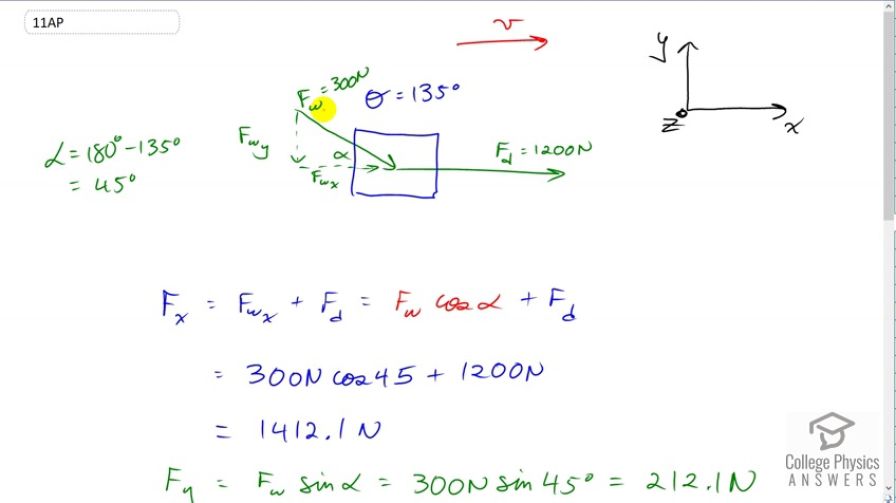 11AP
v
F_w = 300N
θ = 135°
y
z
x
F_wy
α
F_wx
F_d = 1200N
α = 180° - 135°
= 45°
F_x = F_wx + F_d = F_w cos α + F_d
= 300N cos 45 + 1200N
= 1412.1 N
F_y = F_w sin α = 300N sin 45° = 212.1 N
College Physics
ANSWERS